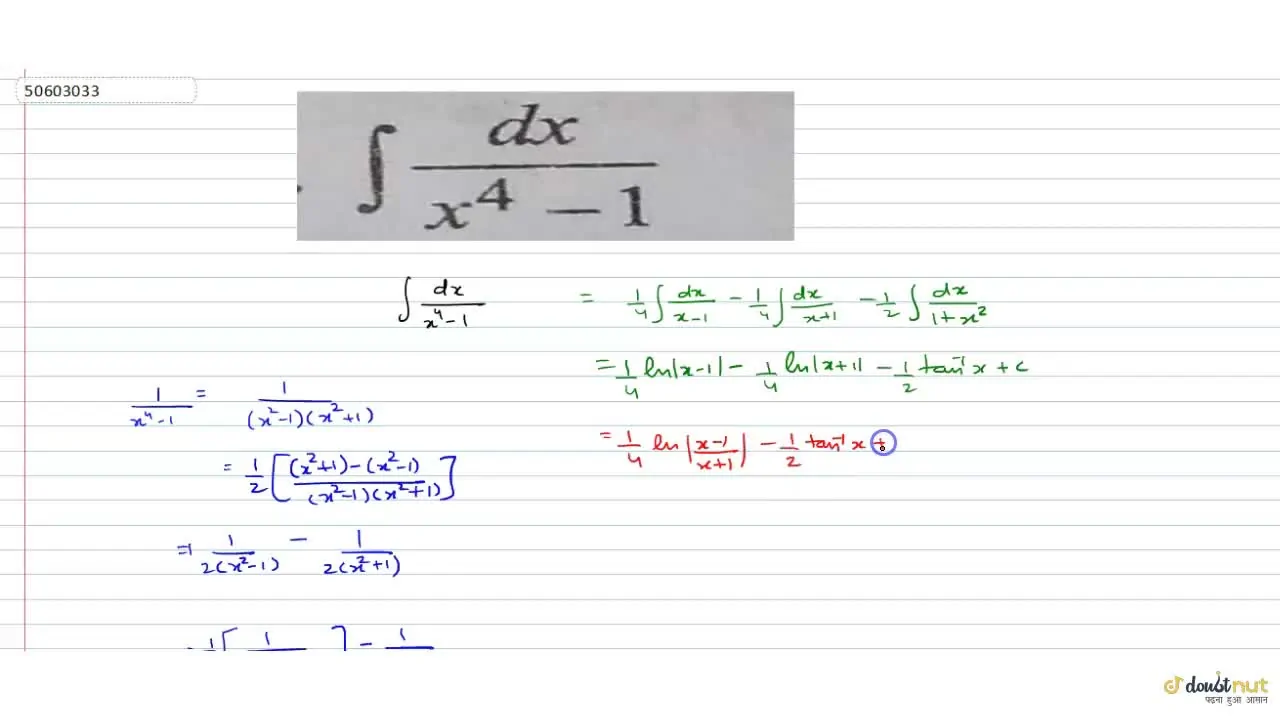 50603033
∫ dx/(x⁴ − 1)
∫ dx/(x⁴ − 1)
= 1/4 ∫ dx/(x−1) − 1/4 ∫ dx/(x+1) − 1/2 ∫ dx/(1+x²)
= 1/4 ln|x−1| − 1/4 ln|x+1| − 1/2 tan⁻¹x + c
= 1/4 ln|(x−1)/(x+1)| − 1/2 tan⁻¹x +
1/(x⁴−1) = 1/((x²−1)(x²+1))
= 1/2 [((x²+1)−(x²−1))/((x²−1)(x²+1))]
= 1/(2(x²−1)) − 1/(2(x²+1))
doubtnut
पढ़ना हुआ आसान